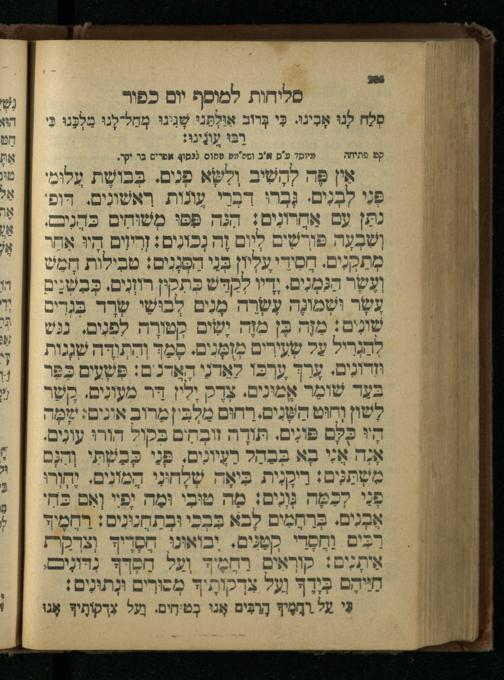 286
סליחות למוסף יום כפור
סְלַח לָנוּ אָבִינוּ. כִּי בְּרוֹב אִוַּלְתֵּנוּ שָׁגִינוּ מְחַל־לָנוּ מַלְכֵּנוּ כִּי
רַבּוּ עֲוֹנֵינוּ:
קט פתיחה מיוסד ע״פ א״ב אפרים בר יקר.
אֵין פֶּה לְהָשִׁיב וְלִשָּׂא פָנִים. בְּבוֹשֶׁת עֲלוּמֵי
פְּנֵי לְבָנִים. גָּבְרוּ דִבְרֵי עֲוֹנוֹת רִאשׁוֹנִים. דּוֹפִי
נִתַּן עִם אַחֲרוֹנִים: הִנֵּה פַסּוּ מְשׁוּחִים כֹּהֲנִים.
וְשִׁבְעָה פּוֹרְשִׁים לְיוֹם זֶה נְכוֹנִים: זְרִיזִים הָיוּ אַחֵר
מְתַקְּנִים. חֲסִידֵי עֶלְיוֹן בְּנֵי הַסְּגָנִים: טְבִילוֹת חָמֵשׁ
וְעֶשֶׂר הַנִּמְנִים. יָדָיו לְקַדֵּשׁ כְּתִקּוּן רוֹזְנִים. כְּבָשִׂים
עֶשֶׂר וּשְׁמוֹנָה עֶשְׂרֵה מָנִים לְבוּשֵׁי שְׂרָד בְּגָדִים
שׁוֹנִים: מִזֶּה בֶּן מִזֶּה יָשִׂים קְטוֹרָה לִפְנִים. נִגַּשׁ
לְהַגְרִיל עַל שְׂעִירִים מְזֻמָּנִים. סָמַךְ וְהִתְוַדָּה שְׁגָגוֹת
וּזְדוֹנִים. עָרַךְ עֶרְכּוֹ לַאֲדֹנֵי הָאֲדֹנִים: פְּשָׁעִים כִּפֵּר
בְּעַד שׁוֹמֵר אֱמוּנִים. צֶדֶק יָלִין דַּר מְעוֹנִים. קָשַׁר
לָשׁוֹן וְחוּט הַשָּׁנִים. רַחוּם מַלְבִּין מֵרוֹב אוֹנִים: שָׁמָּה
הָיוּ כֻּלָּם פּוֹנִים. תּוֹדָה זוֹבְחִים בְּקוֹל הוֹרוּ עוֹנִים.
אָנָּה אֲנִי בָא בְּבַהַל רַעְיוֹנִים. פְּנֵי כְבָשְׁתִּי וְהִנָּם
מִשְׁתַּנִּים: רֵיקָנִית בִּיאָה שְׁלָחוּנִי הֲמוֹנִים. יֶחֱוָרוּ
פָנַי לְכַמָּה גְוָנִים: מַה טּוּבִי וּמַה יָפְיִי וְאִם כֹּחִי
אֲבָנִים. בְּרַחֲמִים לָבֹא בִּבְכִי וּבְתַחֲנוּנִים: רַחֲמֶיךָ
רַבִּים וַחֲסָדֵי קְטַנִּים. יְבוֹאוּנוּ חֲסָדֶיךָ וְצִדְקַת
אֵיתָנִים: קוֹרְאִים רַחֲמֶיךָ וְעַל חַסְדְּךָ נִדּוֹנִים.
חַיֵּיהֶם בְּיָדְךָ וְעַל צִדְקוֹתֶיךָ מְסוּרִים וּנְתוּנִים:
כִּי עַל רַחֲמֶיךָ הָרַבִּים אָנוּ בְטוּחִים. וְעַל צִדְקוֹתֶיךָ אָנוּ